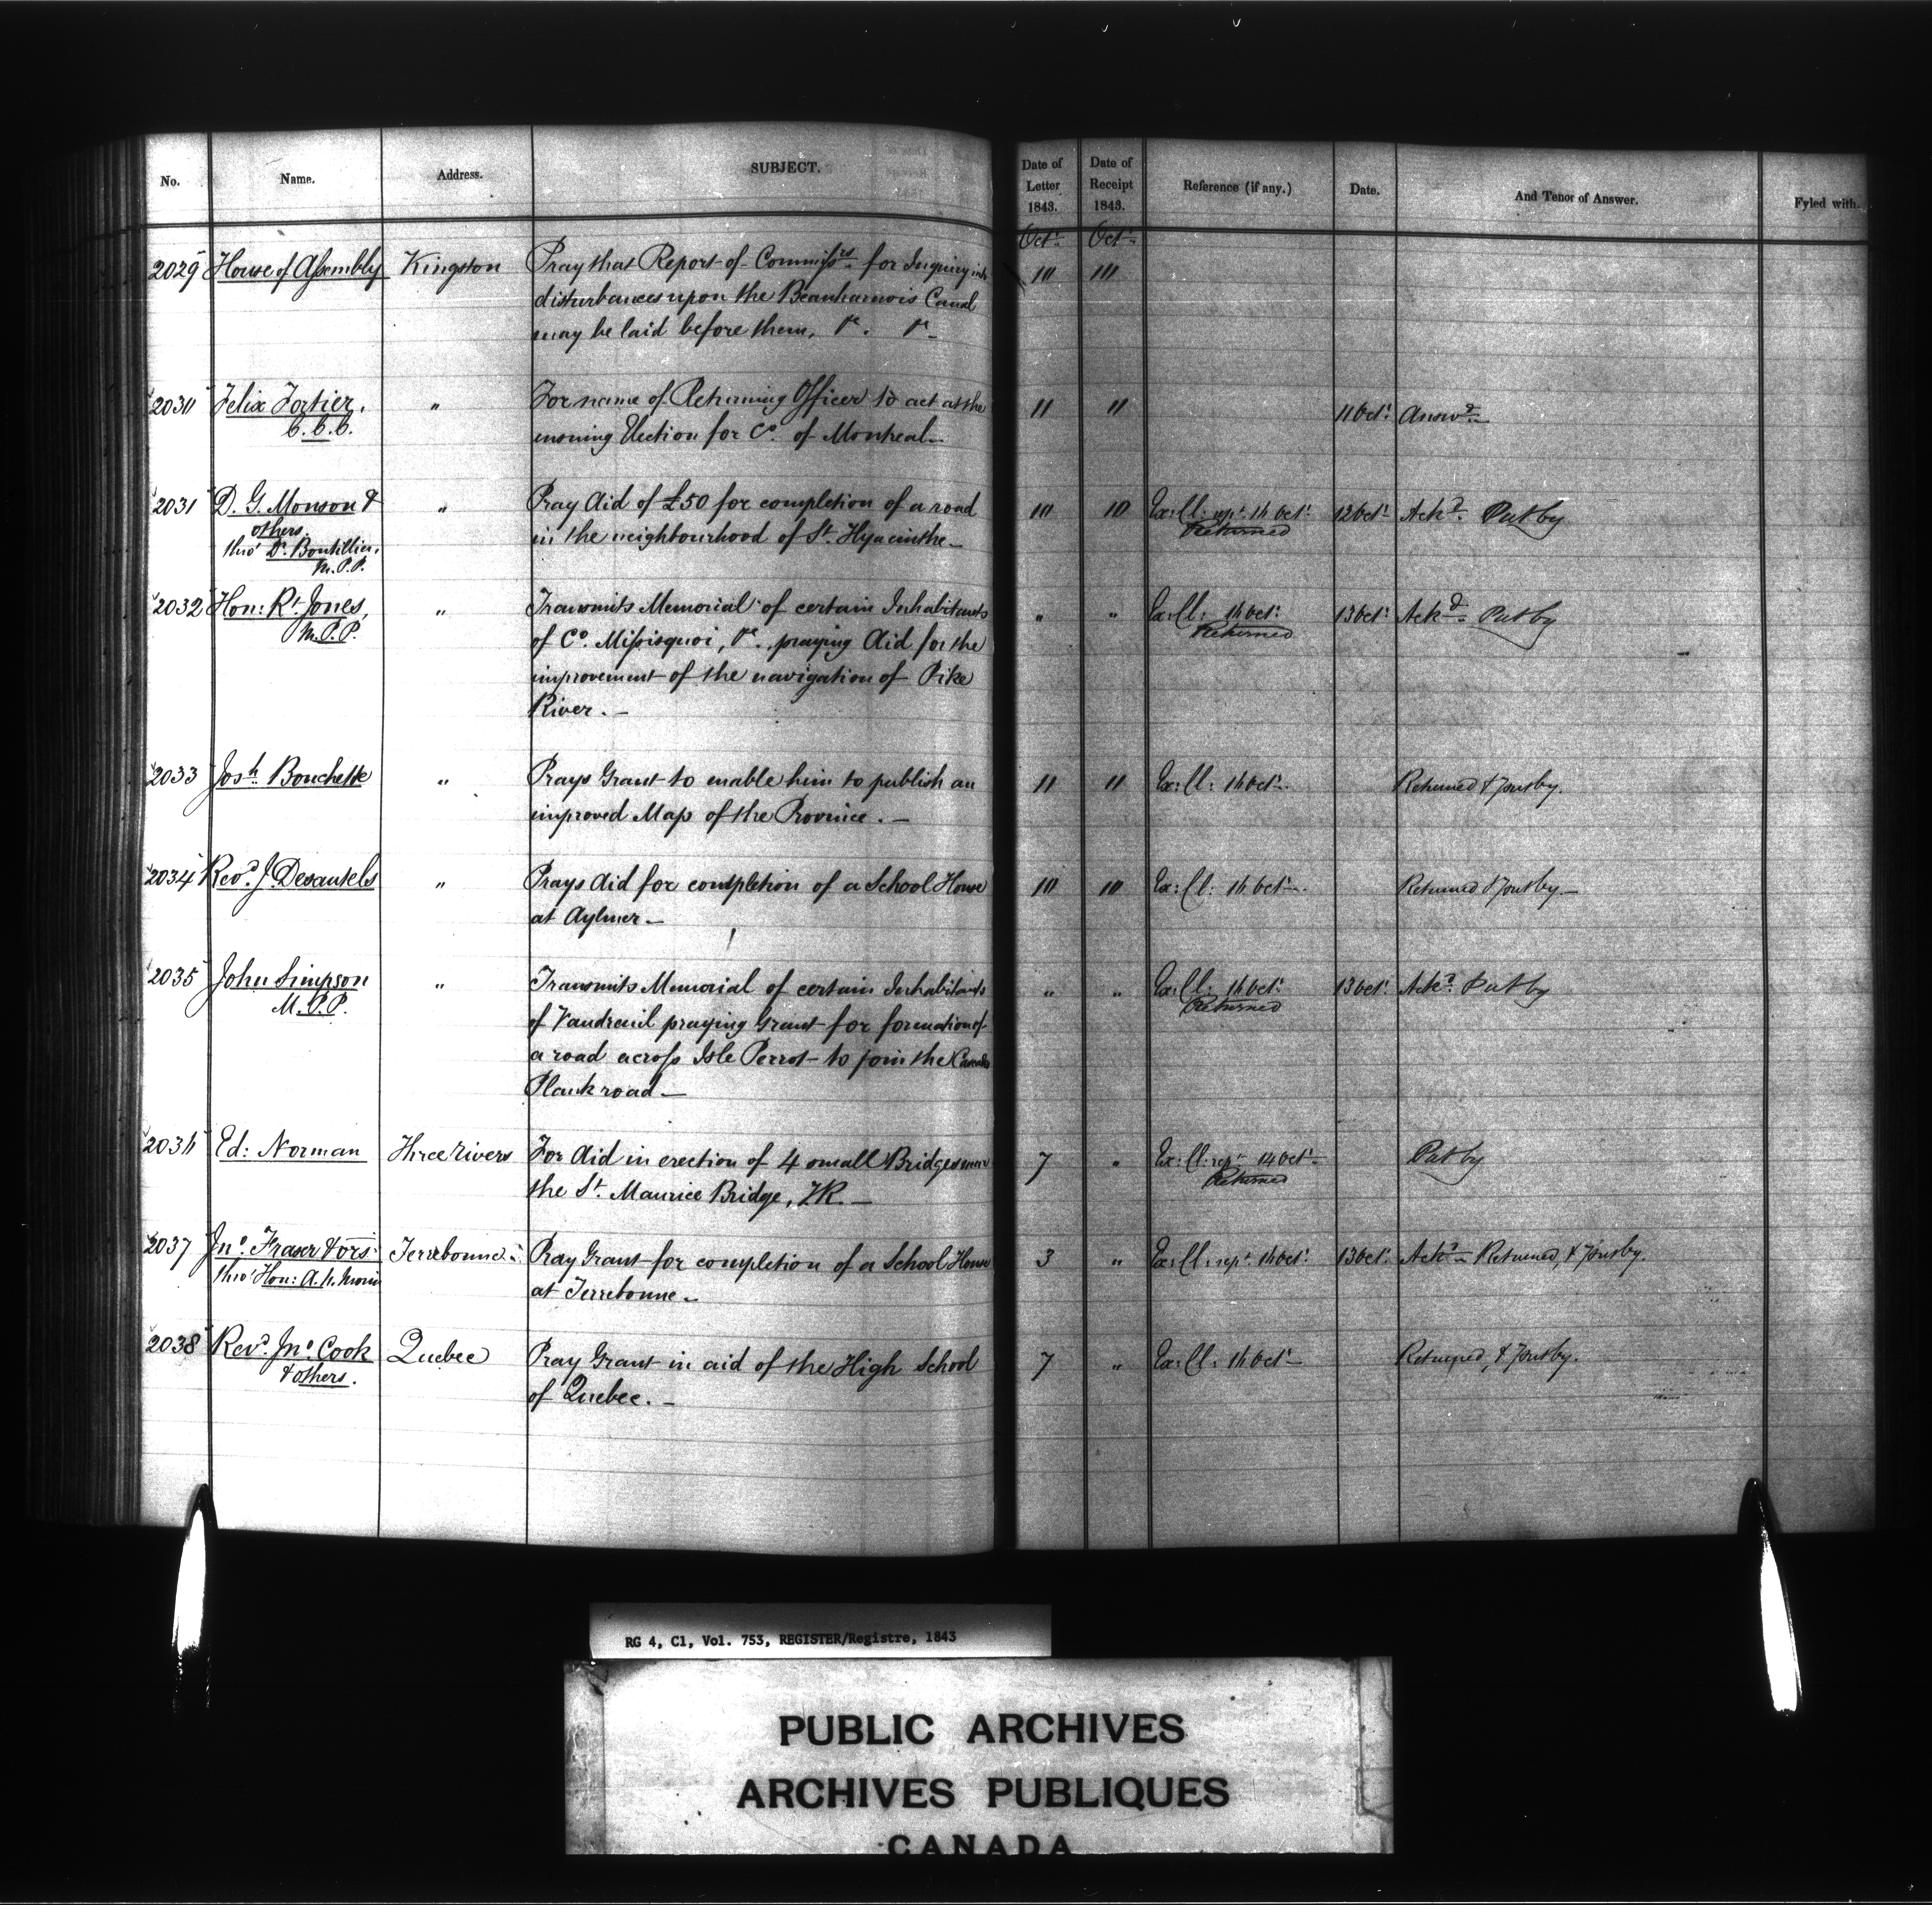 No. Name. Address. SUBJECT. Date of Letter 1843. Date of Receipt 1843. Reference (if any.) Date. And Tenor of Answer. Fyled with.
Octr. Octr.
2029 House of Assembly Kingston Pray that Report of Commissrs. for Inquiry into 10 10
disturbances upon the Beauharnois Canal
may be laid before them, &c. &c.
2030 Felix Fortier, " For name of Returning Officer to act at the 11 11 11 Octr. Answd.
C.C.C. ensuing Election for Co. of Montreal
2031 D. G. Monson & " Pray Aid of £50 for completion of a road 10 10 Ex: Cl: rept. 16 Octr. 12 Octr. Ackd. Put by
others. in the neighbourhood of St. Hyacinthe Returned
thro' Dr. Boutillier,
M.P.P.
2032 Hon: Rt. Jones, " Transmits Memorial of certain Inhabitants " " Ex: Cl: 16 Octr. 13 Octr. Ackd. Put by
M.P.P. of Co. Missisquoi, &c. praying Aid for the Returned
improvement of the navigation of Pike
River.
2033 Josh. Bouchette " Prays Grant to enable him to publish an 11 11 Ex: Cl: 16 Octr. Returned & Put by.
improved Map of the Province.
2034 Revd. J. Desautels " Prays Aid for completion of a School House 10 10 Ex: Cl: 16 Octr. Returned & Put by.
at Aylmer
2035 John Simpson " Transmits Memorial of certain Inhabitants " " Ex: Cl: 16 Octr. 13 Octr. Ackd. Put by
M.P.P. of Vaudreuil praying Grant for formation of Returned
a road across Isle Perrot to join the
Plank road
2036 Ed: Norman Three Rivers For Aid in erection of 4 small Bridges near 7 " Ex: Cl: rept. 14 Octr. Put by
the St. Maurice Bridge, TR. Returned
2037 Jno. Fraser & ors. Terrebonne Pray Grant for completion of a School House 3 " Ex: Cl: rept. 16 Octr. 13 Octr. Ackd. Returned, & Put by.
thro' Hon: A. N. Morin at Terrebonne
2038 Revd. Jno. Cook Quebec Pray Grant in aid of the High School 7 " Ex: Cl: 16 Octr. Returned, & Put by.
& others. of Quebec.
RG 4, C1, Vol. 753, REGISTER/Registre, 1843
PUBLIC ARCHIVES
ARCHIVES PUBLIQUES
CANADA